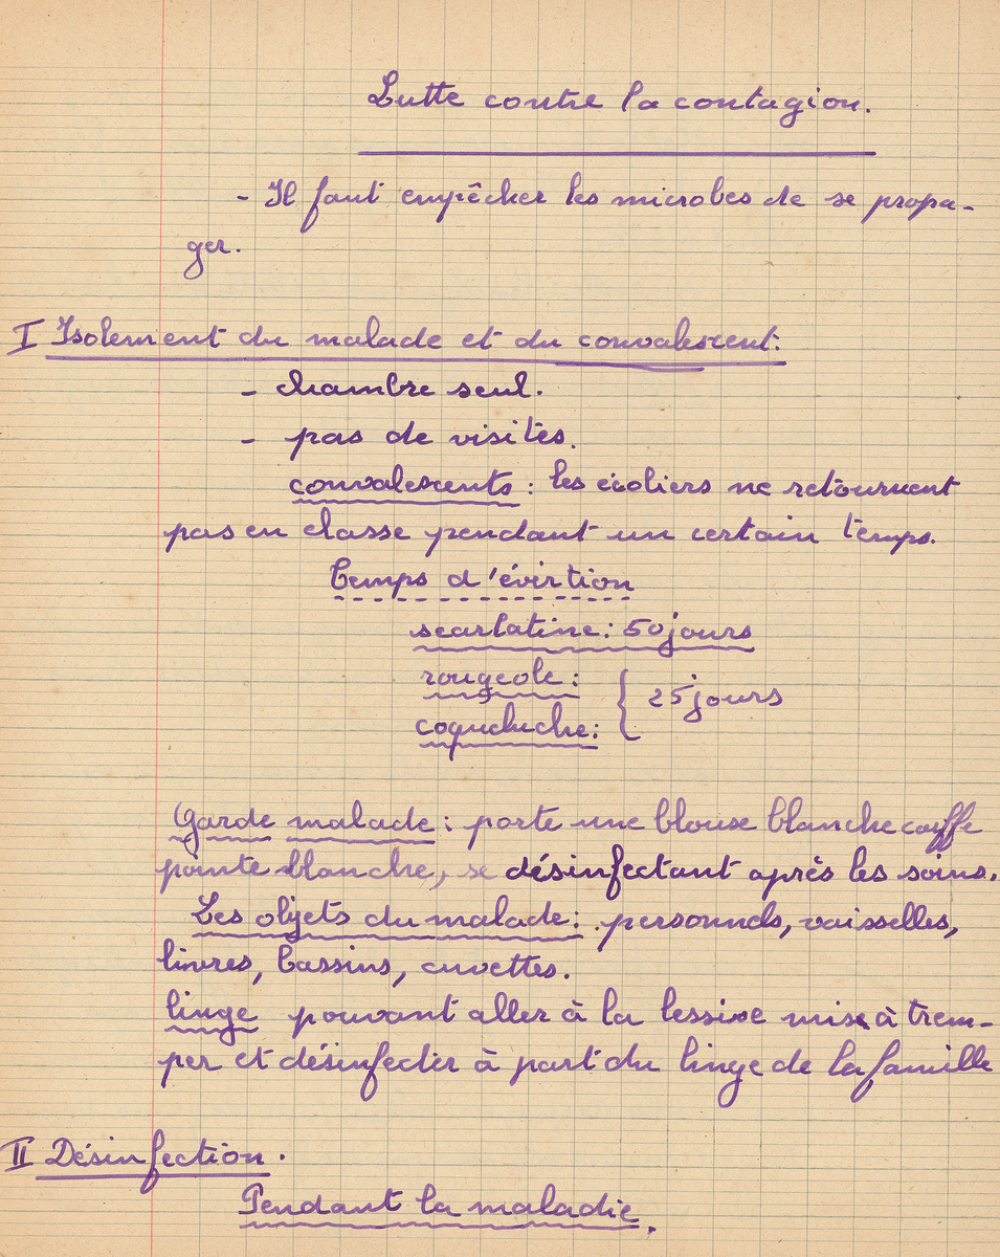 Lutte contre la contagion.
- Il faut empêcher les microbes de se propa-
ger.
I Isolement du malade et du convalescent:
- chambre seul.
- pas de visites.
convalescents : les écoliers ne retournent
pas en classe pendant un certain temps.
Temps d'éviction
scarlatine: 50 jours
rougeole : { 25 jours
coqueluche:
Garde malade : porte une blouse blanche coiffe
pointe blanche, se désinfectant après les soins.
Les objets du malade : personnels, vaisselles,
livres, bassins, cuvettes.
linge pouvant aller à la lessive mis à trem-
per et désinfecter à part du linge de la famille
II Désinfection.
Pendant la maladie.